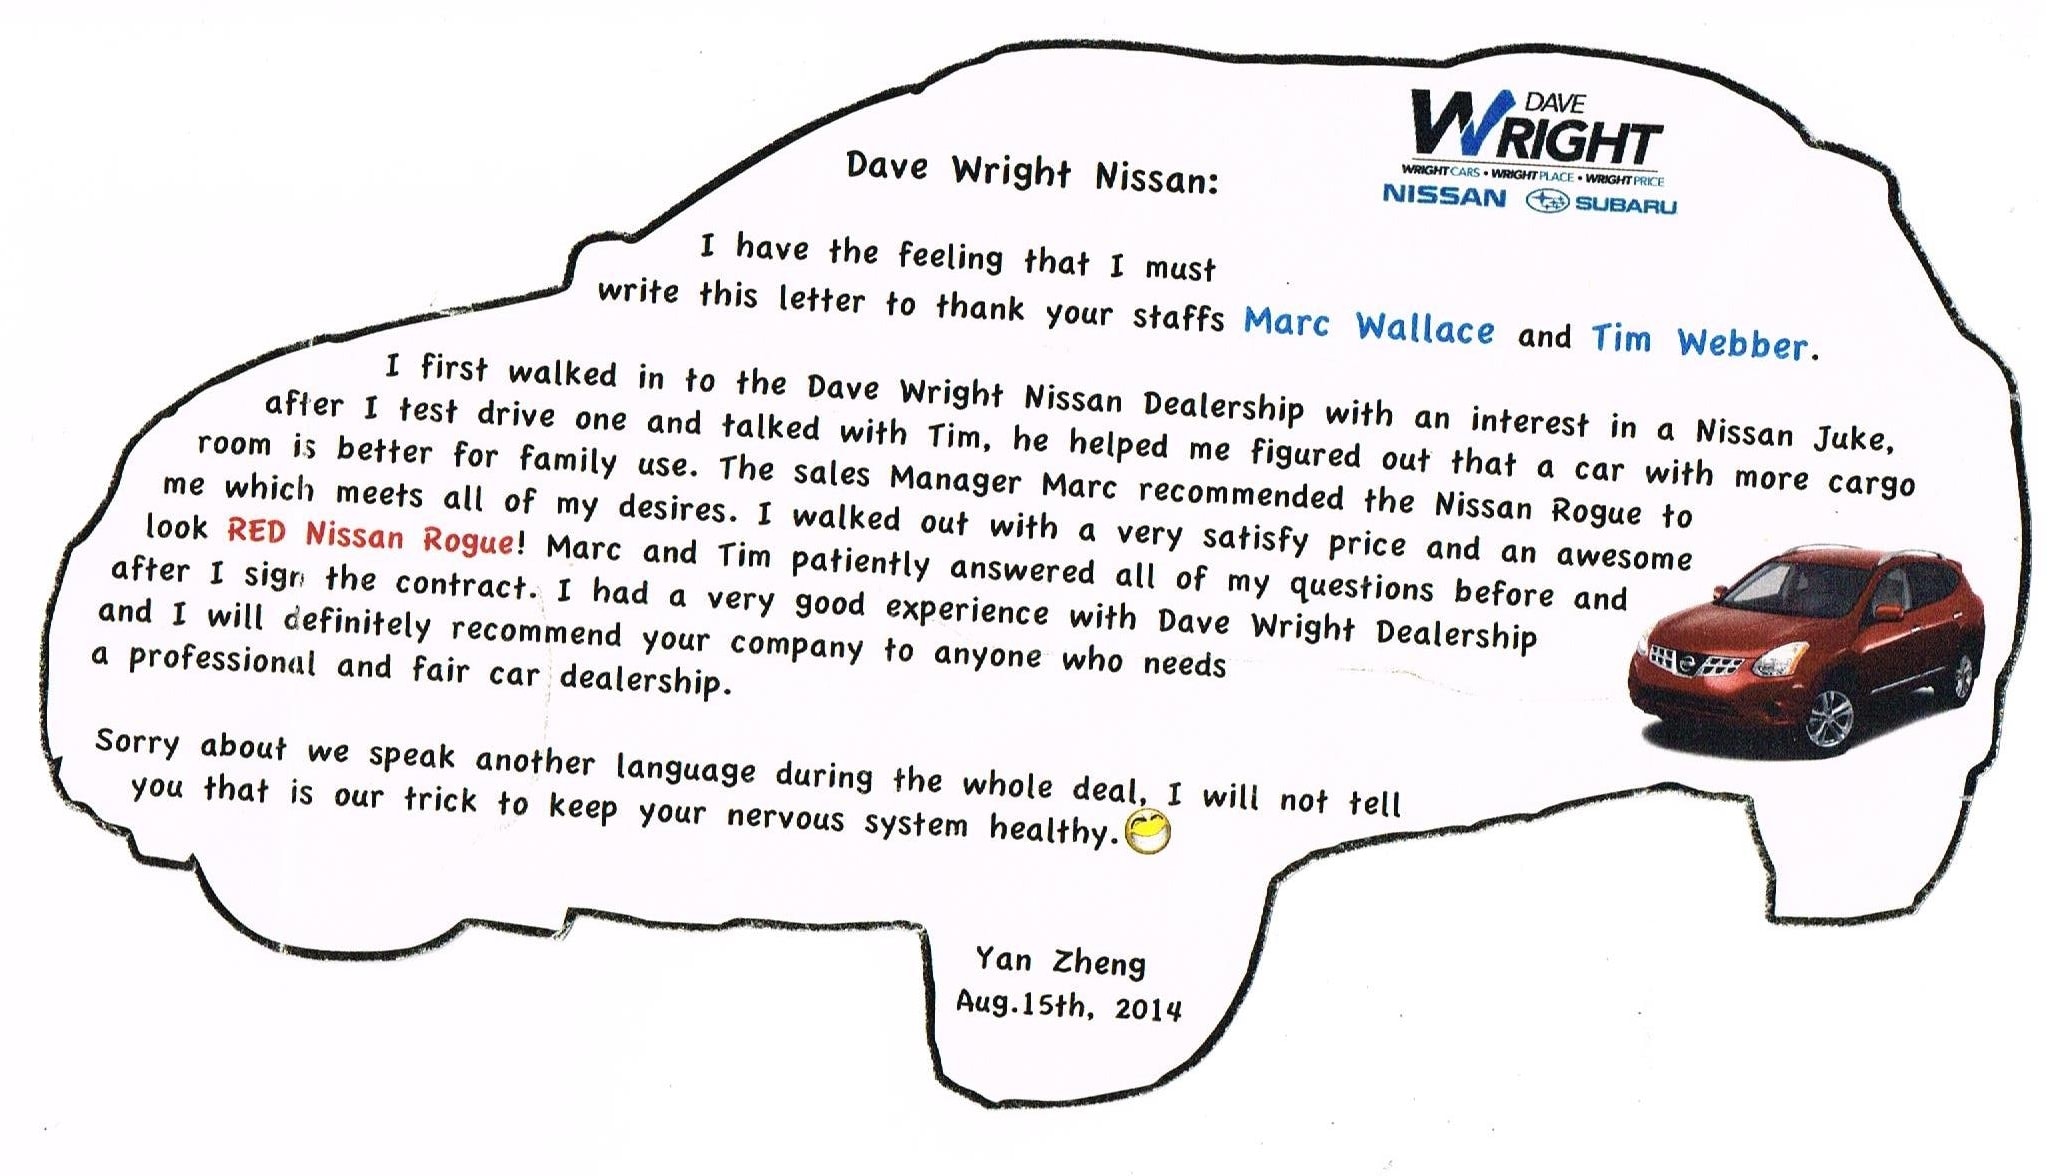 DAVE
WRIGHT
WRIGHT CARS • WRIGHT PLACE • WRIGHT PRICE
NISSAN SUBARU
Dave Wright Nissan:
I have the feeling that I must
write this letter to thank your staffs Marc Wallace and Tim Webber.
I first walked in to the Dave Wright Nissan Dealership with an interest in a Nissan Juke,
after I test drive one and talked with Tim, he helped me figured out that a car with more cargo
room is better for family use. The sales Manager Marc recommended the Nissan Rogue to
me which meets all of my desires. I walked out with a very satisfy price and an awesome
look RED Nissan Rogue! Marc and Tim patiently answered all of my questions before and
after I sign the contract. I had a very good experience with Dave Wright Dealership
and I will definitely recommend your company to anyone who needs
a professional and fair car dealership.
Sorry about we speak another language during the whole deal, I will not tell
you that is our trick to keep your nervous system healthy.
Yan Zheng
Aug.15th, 2014